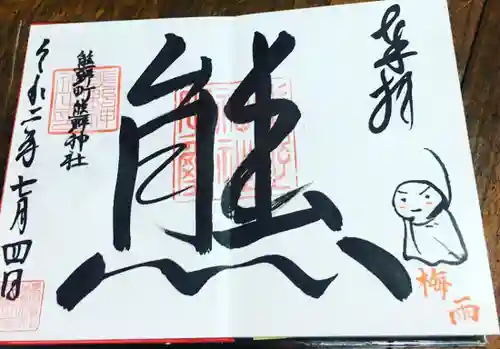 奉拝
熊
熊野町熊野神社
令和二年七月四日
梅雨